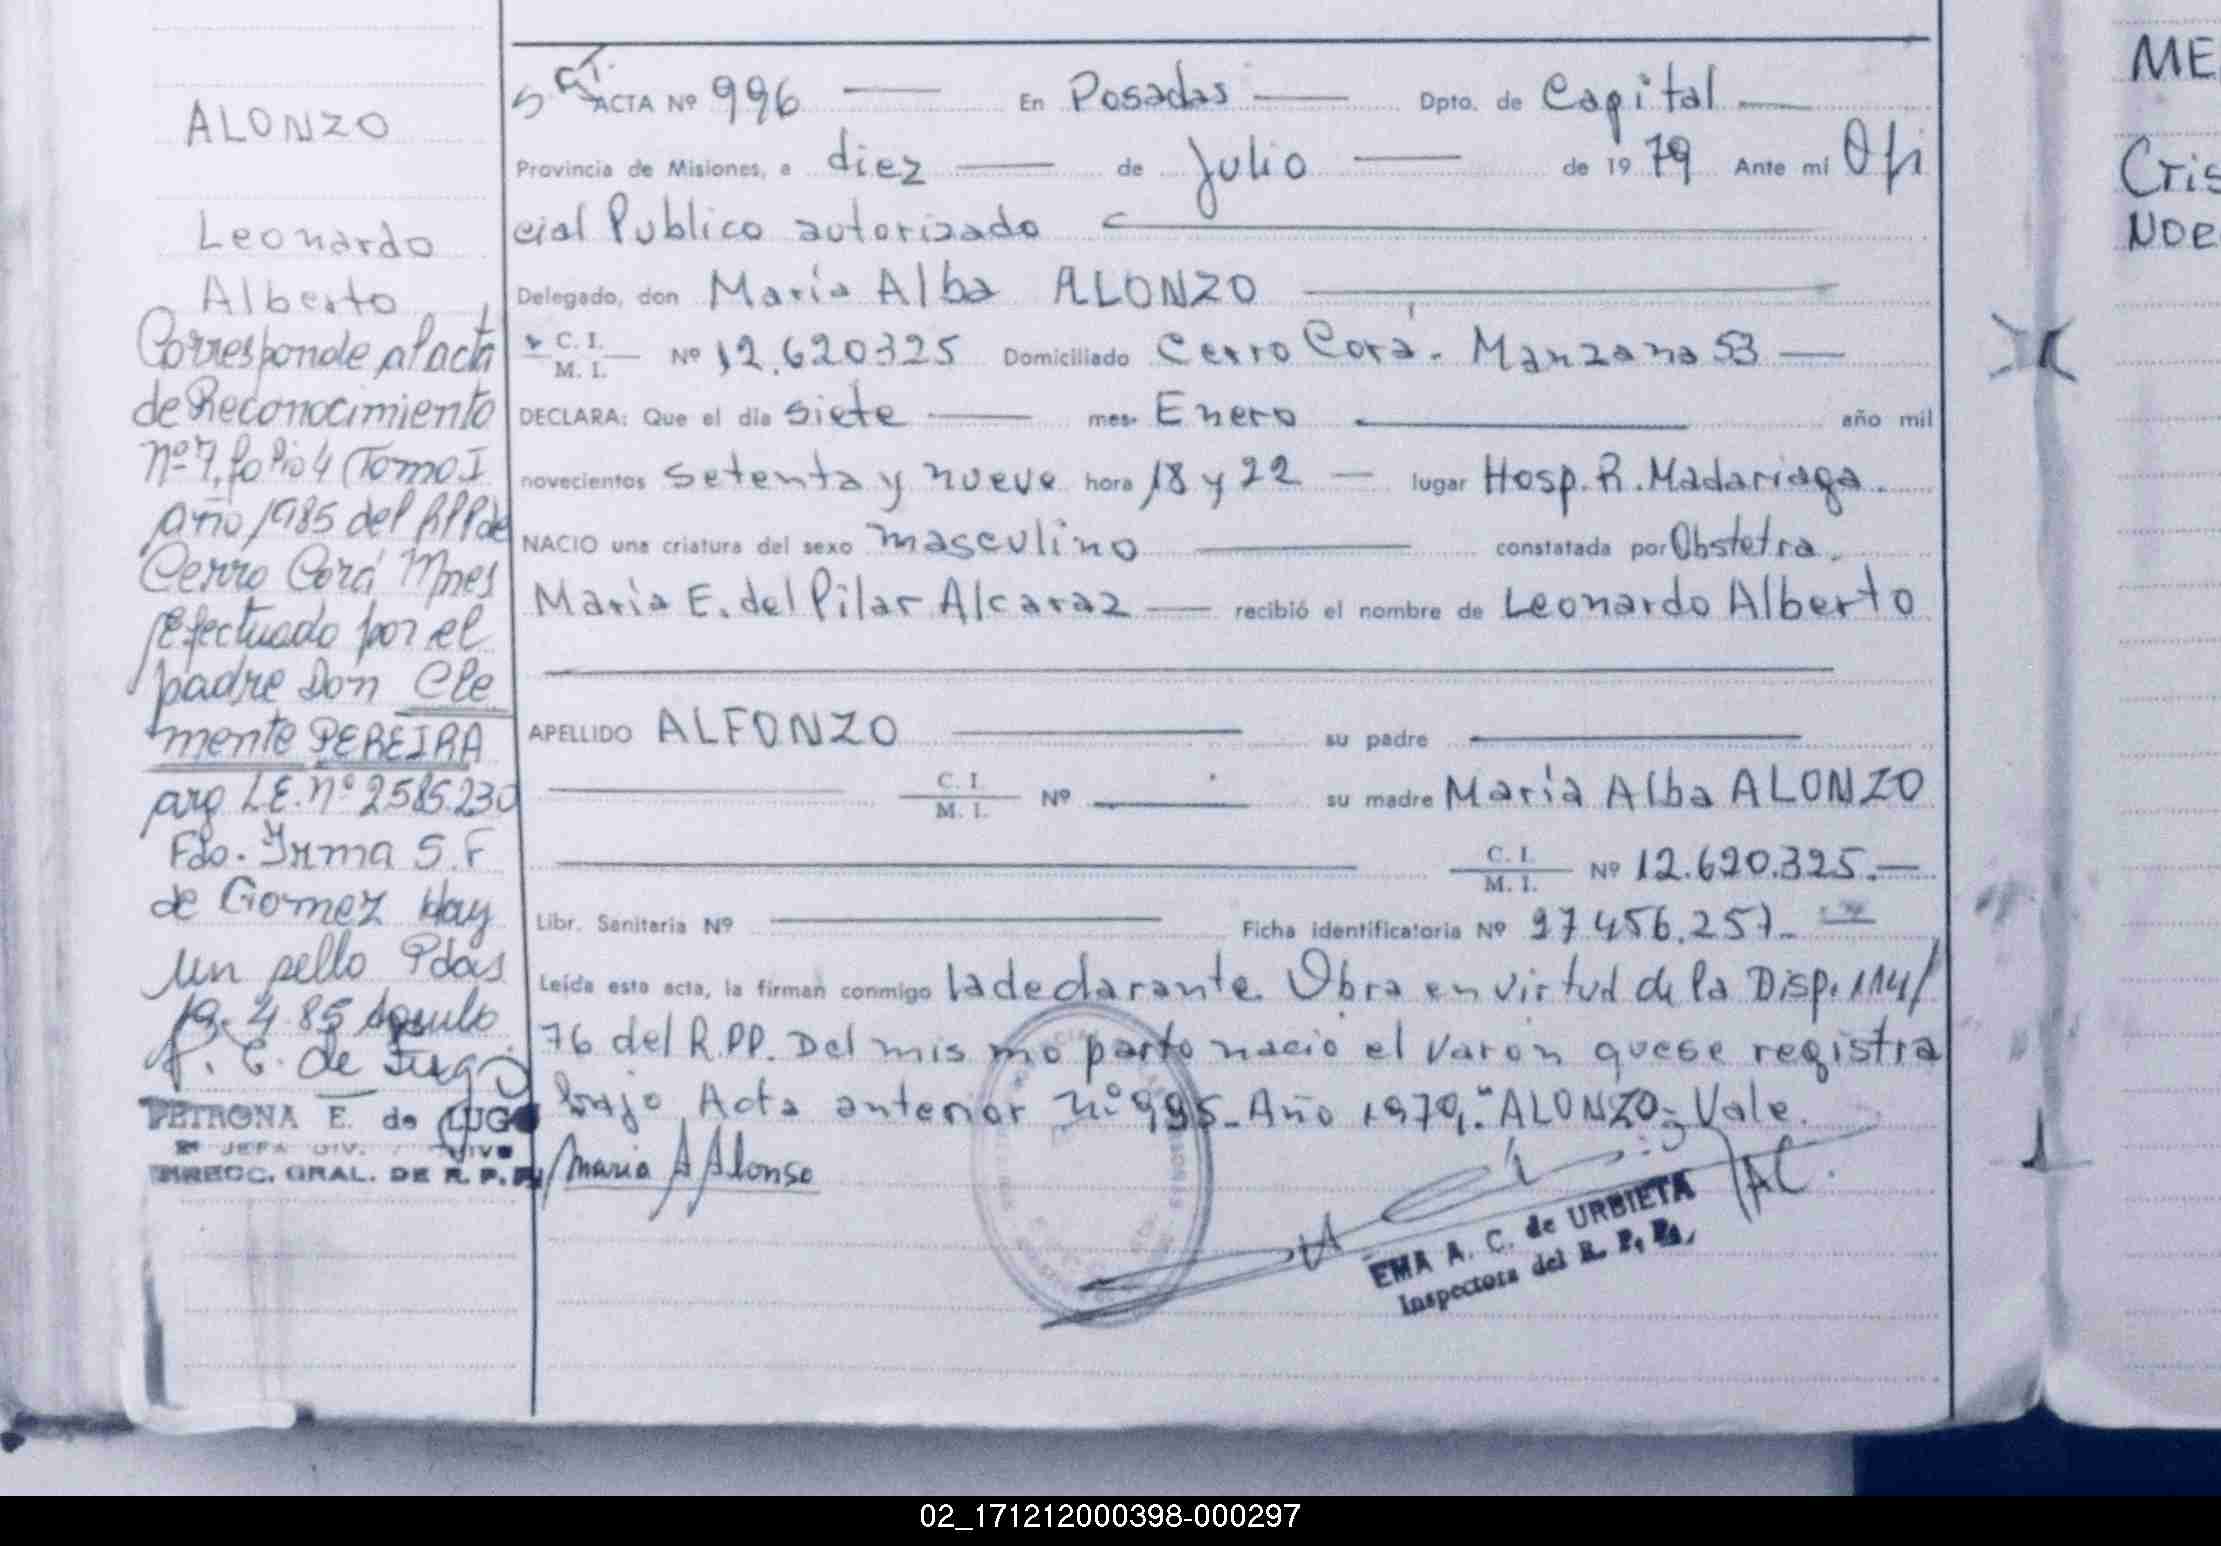 ALONZO
Leonardo
Alberto
Corresponde al acta
de Reconocimiento
nº 7, folio 4 (Tomo I
año 1985 del RPP de
Cerro Corá Mnes
efectuado por el
padre Don Cle
mente PEREIRA
arg L.E. nº 2585.230
Fdo. Irma S. F
de Gomez Hay
un sello Pdas
19.4.85
PETRONA E. de LUGO
JEFA DIV.
DIRECC. GRAL. DE R. P. P.
ACTA Nº 996 En Posadas Dpto. de Capital
Provincia de Misiones, a diez de Julio de 1979 Ante mí Ofi
cial Publico autorizado
Delegado, don María Alba ALONZO
C. I.
M. I. Nº 12.620325 Domiciliado Cerro Corá. Manzana 53
DECLARA: Que el día siete mes. Enero año mil
novecientos setenta y nueve hora 18 y 22 lugar Hosp. R. Madariaga.
NACIO una criatura del sexo masculino constatada por Obstetra.
María E. del Pilar Alcaraz recibió el nombre de Leonardo Alberto
APELLIDO ALFONZO su padre
C. I.
M. I. Nº su madre María Alba ALONZO
C. I.
M. I. Nº 12.620.325.
Libr. Sanitaria Nº Ficha identificatoria Nº 27456.257
Leída esta acta, la firman conmigo la declarante. Obra en virtud de la Disp. 114/
76 del R.PP. Del mismo parto nació el varón que se registra
bajo Acta anterior nº 995. Año 1979. "ALONZO" Vale.
Maria A Alonso
EMA A. C. de URBIETA
Inspectora del R. P. P.
ME
Cris
NOE
02_171212000398-000297